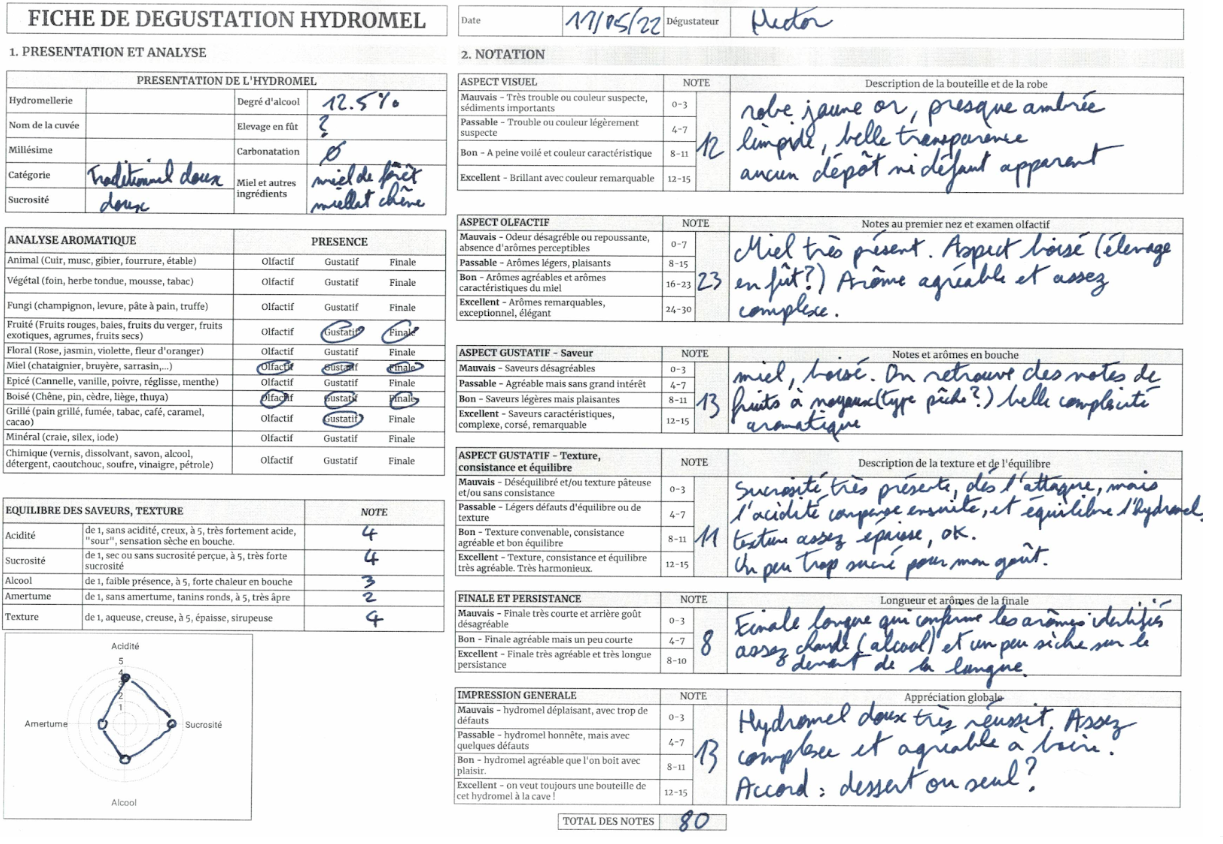 FICHE DE DEGUSTATION HYDROMEL
Date 17/05/22 Dégustateur Hector
1. PRESENTATION ET ANALYSE
PRESENTATION DE L'HYDROMEL
Hydromellerie Degré d'alcool 12.5%
Nom de la cuvée Elevage en fût ?
Millésime Carbonatation Ø
Catégorie Traditionnel doux Miel et autres ingrédients miel de forêt
Sucrosité doux miellat chêne
ANALYSE AROMATIQUE PRESENCE
Animal (Cuir, musc, gibier, fourrure, étable) Olfactif Gustatif Finale
Végétal (foin, herbe tondue, mousse, tabac) Olfactif Gustatif Finale
Fungi (champignon, levure, pâte à pain, truffe) Olfactif Gustatif Finale
Fruité (Fruits rouges, baies, fruits du verger, fruits
exotiques, agrumes, fruits secs) Olfactif Gustatif Finale
Floral (Rose, jasmin, violette, fleur d'oranger) Olfactif Gustatif Finale
Miel (chataignier, bruyère, sarrasin,...) Olfactif Gustatif Finale
Epicé (Cannelle, vanille, poivre, réglisse, menthe) Olfactif Gustatif Finale
Boisé (Chêne, pin, cèdre, liège, thuya) Olfactif Gustatif Finale
Grillé (pain grillé, fumée, tabac, café, caramel,
cacao) Olfactif Gustatif Finale
Minéral (craie, silex, iode) Olfactif Gustatif Finale
Chimique (vernis, dissolvant, savon, alcool,
détergent, caoutchouc, soufre, vinaigre, pétrole) Olfactif Gustatif Finale
EQUILIBRE DES SAVEURS, TEXTURE NOTE
Acidité de 1, sans acidité, creux, à 5, très fortement acide,
"sour", sensation sèche en bouche. 4
Sucrosité de 1, sec ou sans sucrosité perçue, à 5, très forte
sucrosité 4
Alcool de 1, faible présence, à 5, forte chaleur en bouche 3
Amertume de 1, sans amertume, tanins ronds, à 5, très âpre 2
Texture de 1, aqueuse, creuse, à 5, épaisse, sirupeuse 4
Acidité
5
4
3
2
1
Amertume Sucrosité
Alcool
2. NOTATION
ASPECT VISUEL NOTE Description de la bouteille et de la robe
Mauvais - Très trouble ou couleur suspecte,
sédiments importants 0-3
Passable - Trouble ou couleur légèrement
suspecte 4-7
Bon - A peine voilé et couleur caractéristique 8-11
Excellent - Brillant avec couleur remarquable 12-15
12
robe jaune or, presque ambrée
limpide, belle transparence
aucun dépôt ni défaut apparent
ASPECT OLFACTIF NOTE Notes au premier nez et examen olfactif
Mauvais - Odeur désagréble ou repoussante,
absence d'arômes perceptibles 0-7
Passable - Arômes légers, plaisants 8-15
Bon - Arômes agréables et arômes
caractéristiques du miel 16-23
Excellent - Arômes remarquables,
exceptionnel, élégant 24-30
23
Miel très présent. Aspect boisé (élevage
en fût?) Arôme agréable et assez
complexe.
ASPECT GUSTATIF - Saveur NOTE Notes et arômes en bouche
Mauvais - Saveurs désagréables 0-3
Passable - Agréable mais sans grand intérêt 4-7
Bon - Saveurs légères mais plaisantes 8-11
Excellent - Saveurs caractéristiques,
complexe, corsé, remarquable 12-15
13
miel, boisé. On retrouve des notes de
fruits à noyaux (type pêche?) belle complexité
aromatique
ASPECT GUSTATIF - Texture,
consistance et équilibre NOTE Description de la texture et de l'équilibre
Mauvais - Déséquilibré et/ou texture pâteuse
et/ou sans consistance 0-3
Passable - Légers défauts d'équilibre ou de
texture 4-7
Bon - Texture convenable, consistance
agréable et bon équilibre 8-11
Excellent - Texture, consistance et équilibre
très agréable. Très harmonieux. 12-15
11
Sucrosité très présente, dès l'attaque, mais
l'acidité compense ensuite, et équilibre l'hydromel.
texture assez épaisse, ok.
Un peu trop sucré pour mon goût.
FINALE ET PERSISTANCE NOTE Longueur et arômes de la finale
Mauvais - Finale très courte et arrière goût
désagréable 0-3
Bon - Finale agréable mais un peu courte 4-7
Excellent - Finale très agréable et très longue
persistance 8-10
8
Finale longue qui confirme les arômes identifiés
assez chaude (alcool) et un peu sèche sur le
devant de la langue.
IMPRESSION GENERALE NOTE Appréciation globale
Mauvais - hydromel déplaisant, avec trop de
défauts 0-3
Passable - hydromel honnête, mais avec
quelques défauts 4-7
Bon - hydromel agréable que l'on boit avec
plaisir. 8-11
Excellent - on veut toujours une bouteille de
cet hydromel à la cave ! 12-15
13
Hydromel doux très réussit. Assez
complexe et agréable à boire.
Accord : dessert ou seul ?
TOTAL DES NOTES 80